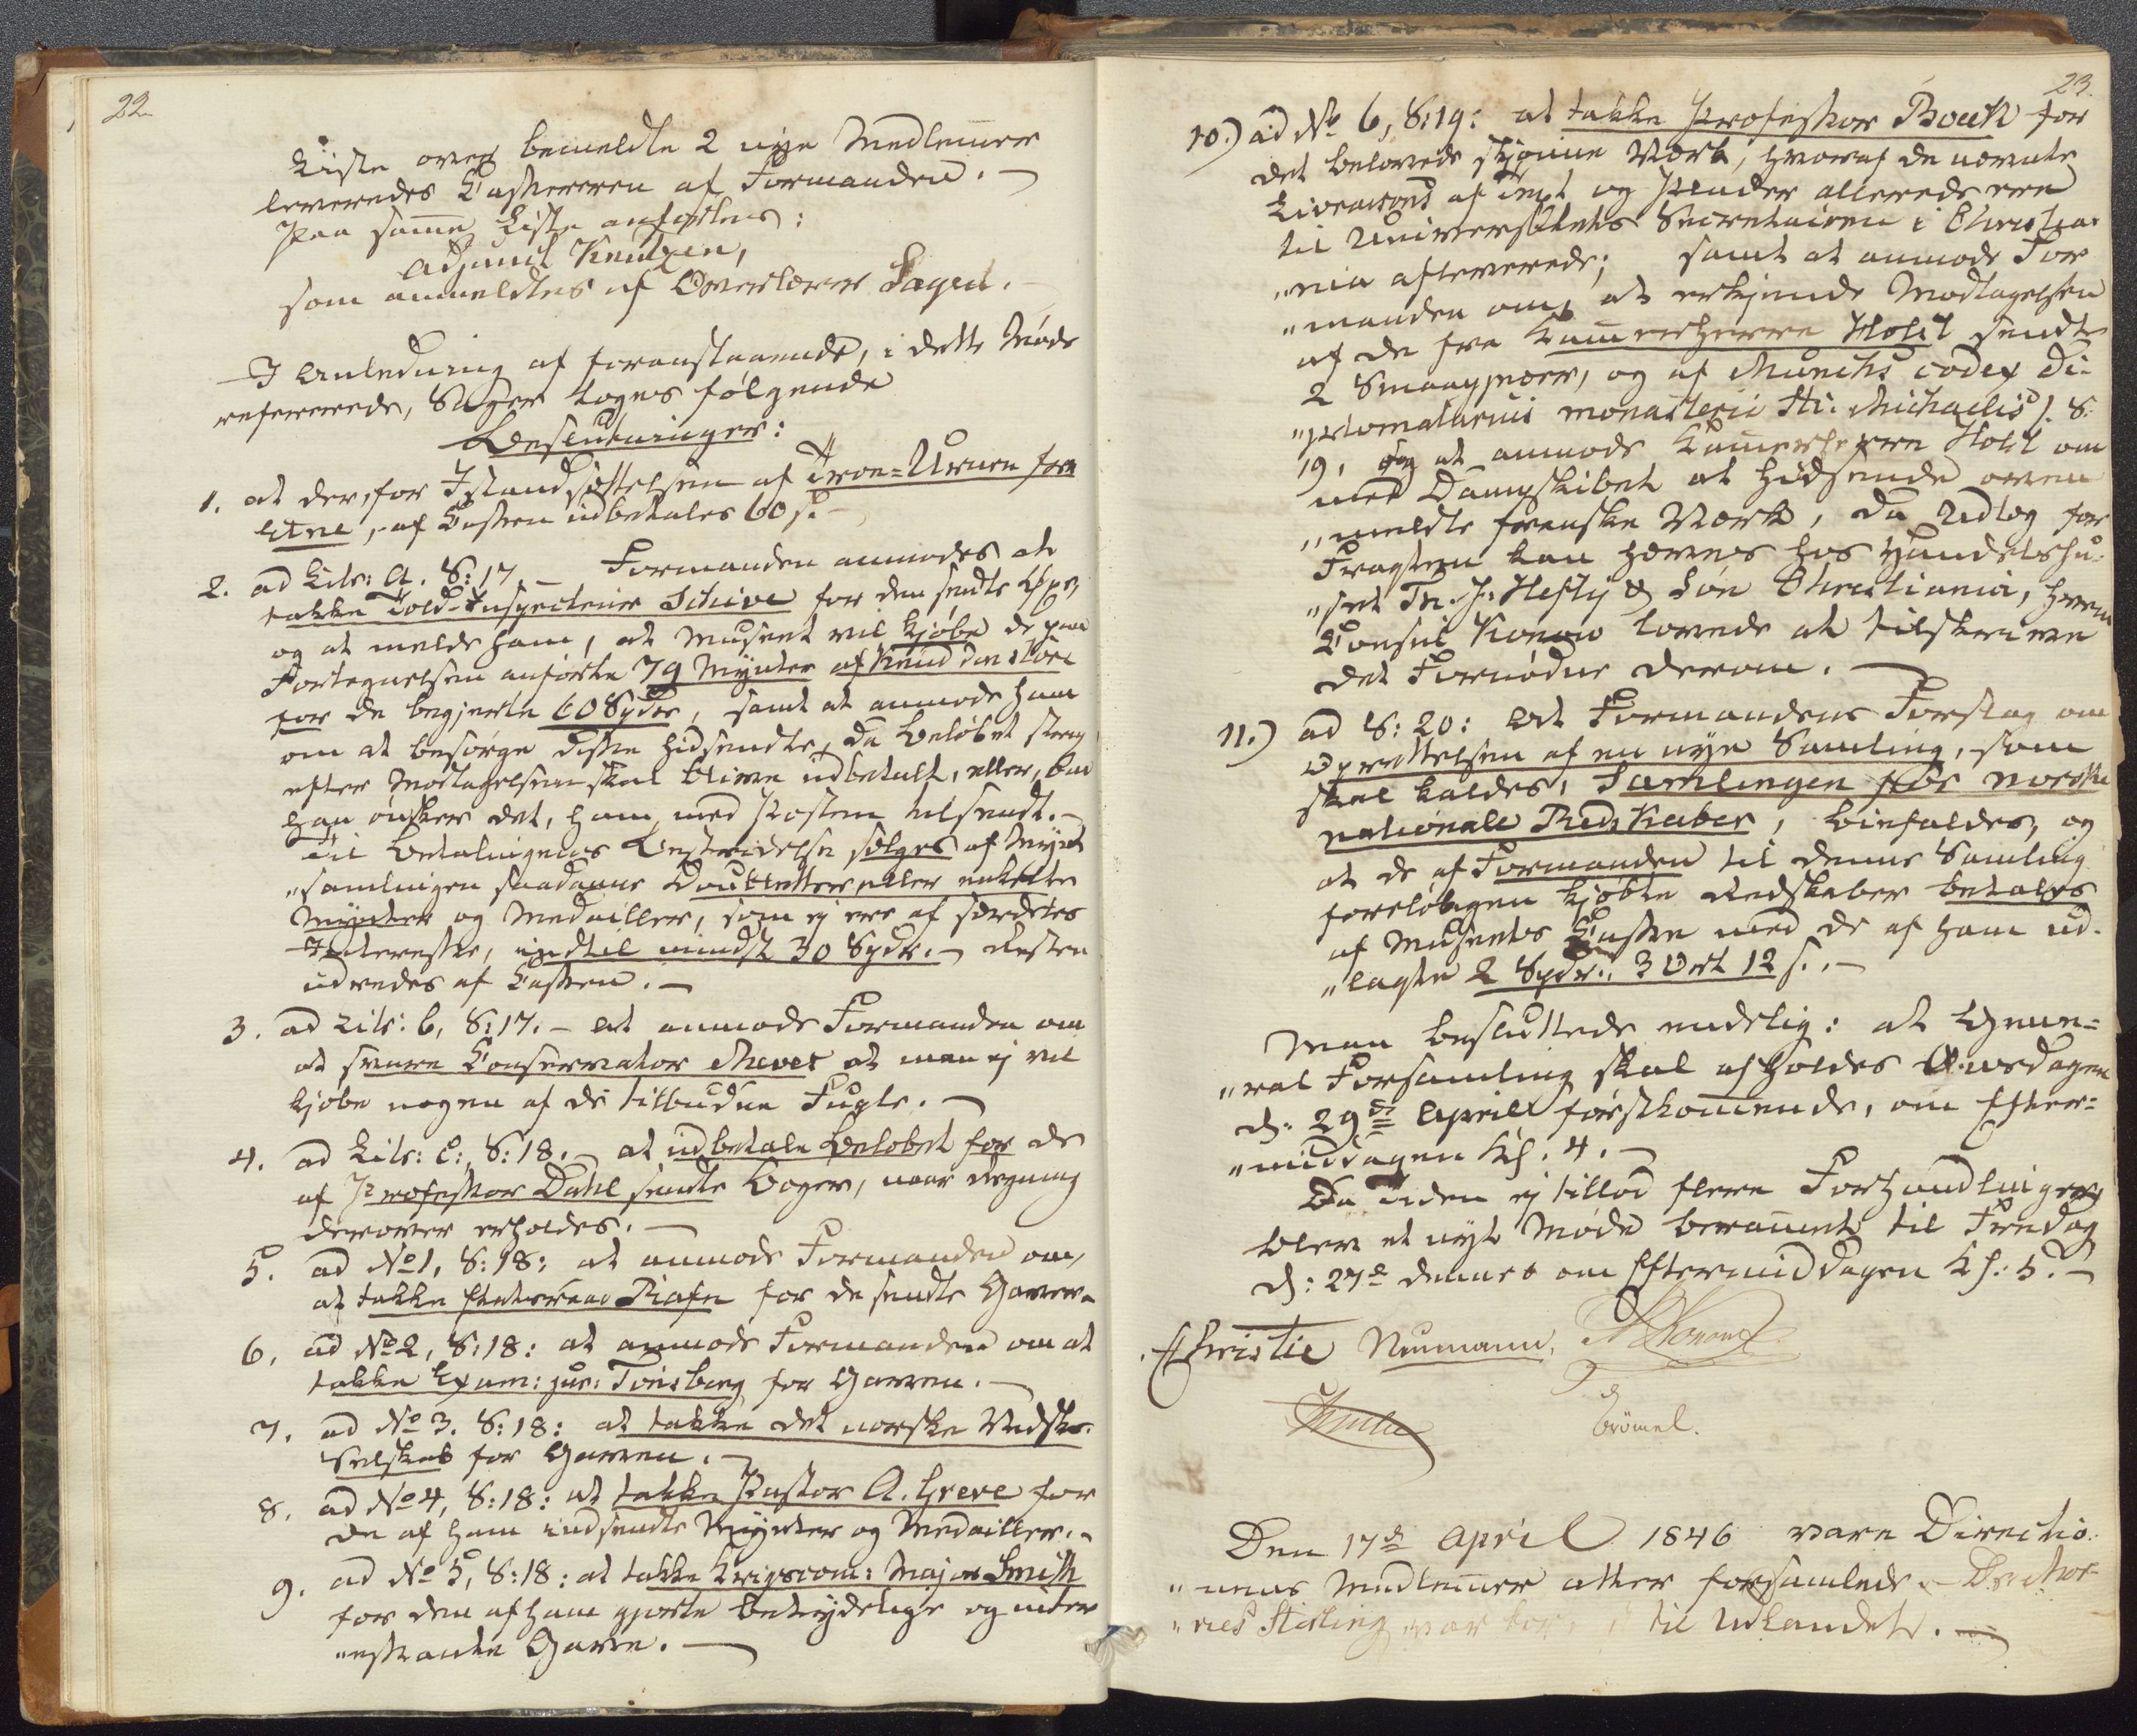 22
Liste over bemeldte 2 nye Medlemmer
leveredes Cassereren af Formanden. –
Paa samme Liste anførtes:
Adjunct Knutzen,
som anmeldtes af Overlærer Sagen. –
I Anledning af foranstaaende, i dette Møde
refererede, Sager toges følgende
Beslutninger:
1. at der, for Istandsættelsen af Troe-Urnen fra
Etne, af Cassen udbetales 60 s. –
2. ad Litr: A. S: 17. – Formanden anmodes at
takke Told-Inspecteur Schive for den sendte
og at melde ham, at Museet vil kjøbe de paa
Fortegnelsen anførte 79 Mynter af Knud den store
for de begjerte 60 Spdlr, samt at anmode ham
om at besørge disse hidsendte, da Beløbet strax
efter Modtagelsen skal blive udbetalt, eller, om
han ønsker det, ham med Posten tilsendt. –
Til Betalingens Bestridelse sælges af Mynt
„samlingen saadanne Doubletter eller enkelte
Mynter og Medailler, som ej ere af særdeles
Interesse, indtil mindst 30 Spdlr. – Resten
udredes af Cassen. –
3. ad Litr: b, S: 17. – at anmode Formanden om
at svare Conservator Meves at man ej vil
kjøbe nogen af de tilbudne Fugle. –
4. ad Litr: C:, S: 18. – at udbetale Beløbet for de
af Professor Dahl sendte Bøger, naar Regning
derover erholdes. –
5. ad No 1, S: 18: at anmode Formanden om,
at takke Etatsraad Rafn for de sendte Gaver. –
6. ad No 2, S: 18: at anmode Formanden om at
takke Exam: jur: Tønsberg for Gaven. –
7. ad No 3. S: 18: at takke det norske Vidsk:
Selskab for Gaven. –
8. ad No 4, S: 18: at takke Pastor A. Greve for
de af ham indsendte Mynter og Medailler. –
9. ad No 5, S: 18: at takke Krigscom: Major Smith
for den af ham gjorte betydelige og inter
„essante Gave. –
23.
10.) ad No 6, S: 19: at takke Professor Boeck for
det lovede skjønne Værk, hvoraf de nævnte
af Text og Plader allerede ere
til Universitetets Secretairen i Christia
„nia afleverede; samt at anmode For
„manden om, at erkjende Modtagelsen
af de fra Kammerherre Holst sendte
2 Smaagjæss, og af Munchs codex di-
„plomatarius monasterii Sti: Michaelis). S:
19, og at anmode Kammerherre Holst om
med Dampskibet at hidsende oven
„meldte franske Værk, da Udlæg for
Fragten kan hæves hos Handelshu-
„set Th. J. Heftÿ & Søn Christiania, hvem
Consul Konow lovede at tilskrive
det Fornødne derom. –
11.) ad S: 20: At Formandens Forslag om
Oprettelsen af en nye Samling, som
skal kaldes, Samlingen for norske
nationale Redskaber, bifaldes, og
at de af Formanden til denne Samling
foreløbigen kjøbte Redskaber betales
af Museets Casse med de af ham ud-
„lagte 2 Spdlr: 3 Ort 12 s. –
Man besluttede endelig: at Gene=
„ral Forsamling skal afholdes Onsdagen
d: 29de April førstkommende, om Efter=
„middagen Kl. 4. –
Da Tiden ej tillod flere Forhandlinger,
blev et nyt Møde berammet til Fredag
d: 27de dennes om Eftermiddagen Kl: 5. –
Christie Neumann. Konow
Brömel.
Den 17de April 1846 vare Directio
„nens Medlemmer atter forsamlede. –
Stirling var til Udlandet. –